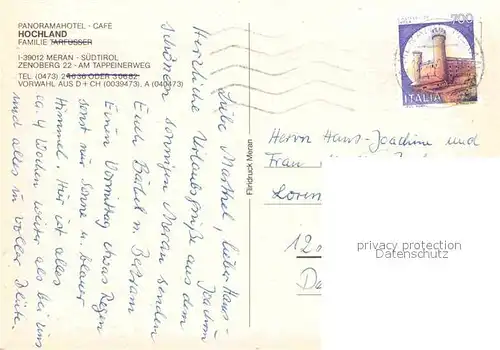 PANORAMAHOTEL - CAFÉ
HOCHLAND
FAMILIE TARFUSSER
I-39012 MERAN - SÜDTIROL
ZENOBERG 22 - AM TAPPEINERWEG
TEL (0473) 24036 ODER 30682
VORWAHL AUS D + CH (0039473), A (040473)
Liebe Marthel, lieber Hans-
Joachim
Herrliche Urlaubsgrüße aus dem
schönen sonnigen Meran senden
Euch Bärbel u. Bertram
Einen Vormittag etwas Regen
sonst nur Sonne u. blauer
Himmel. Hier ist alles
ca 4 Wochen weiter als bei uns
und alles in voller Blüte.
Flridruck Meran
700
ITALIA
Herrn Hans-Joachim und
Frau
Loren
privacy protection
Datenschutz